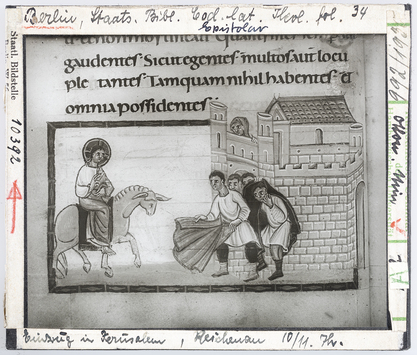 Berlin, Staats. Bibl. Cod. lat. Theol. fol. 34
Epistolar
gaudentes · Sicut egentes · multos aut locu
ple tantes · Tamquam nihil habentes · et
omnia possidentes ·
Staatl. Bildstelle
10392
Otton. Min
Einzug in Jerusalem, Reichenau 10/11. Jh.